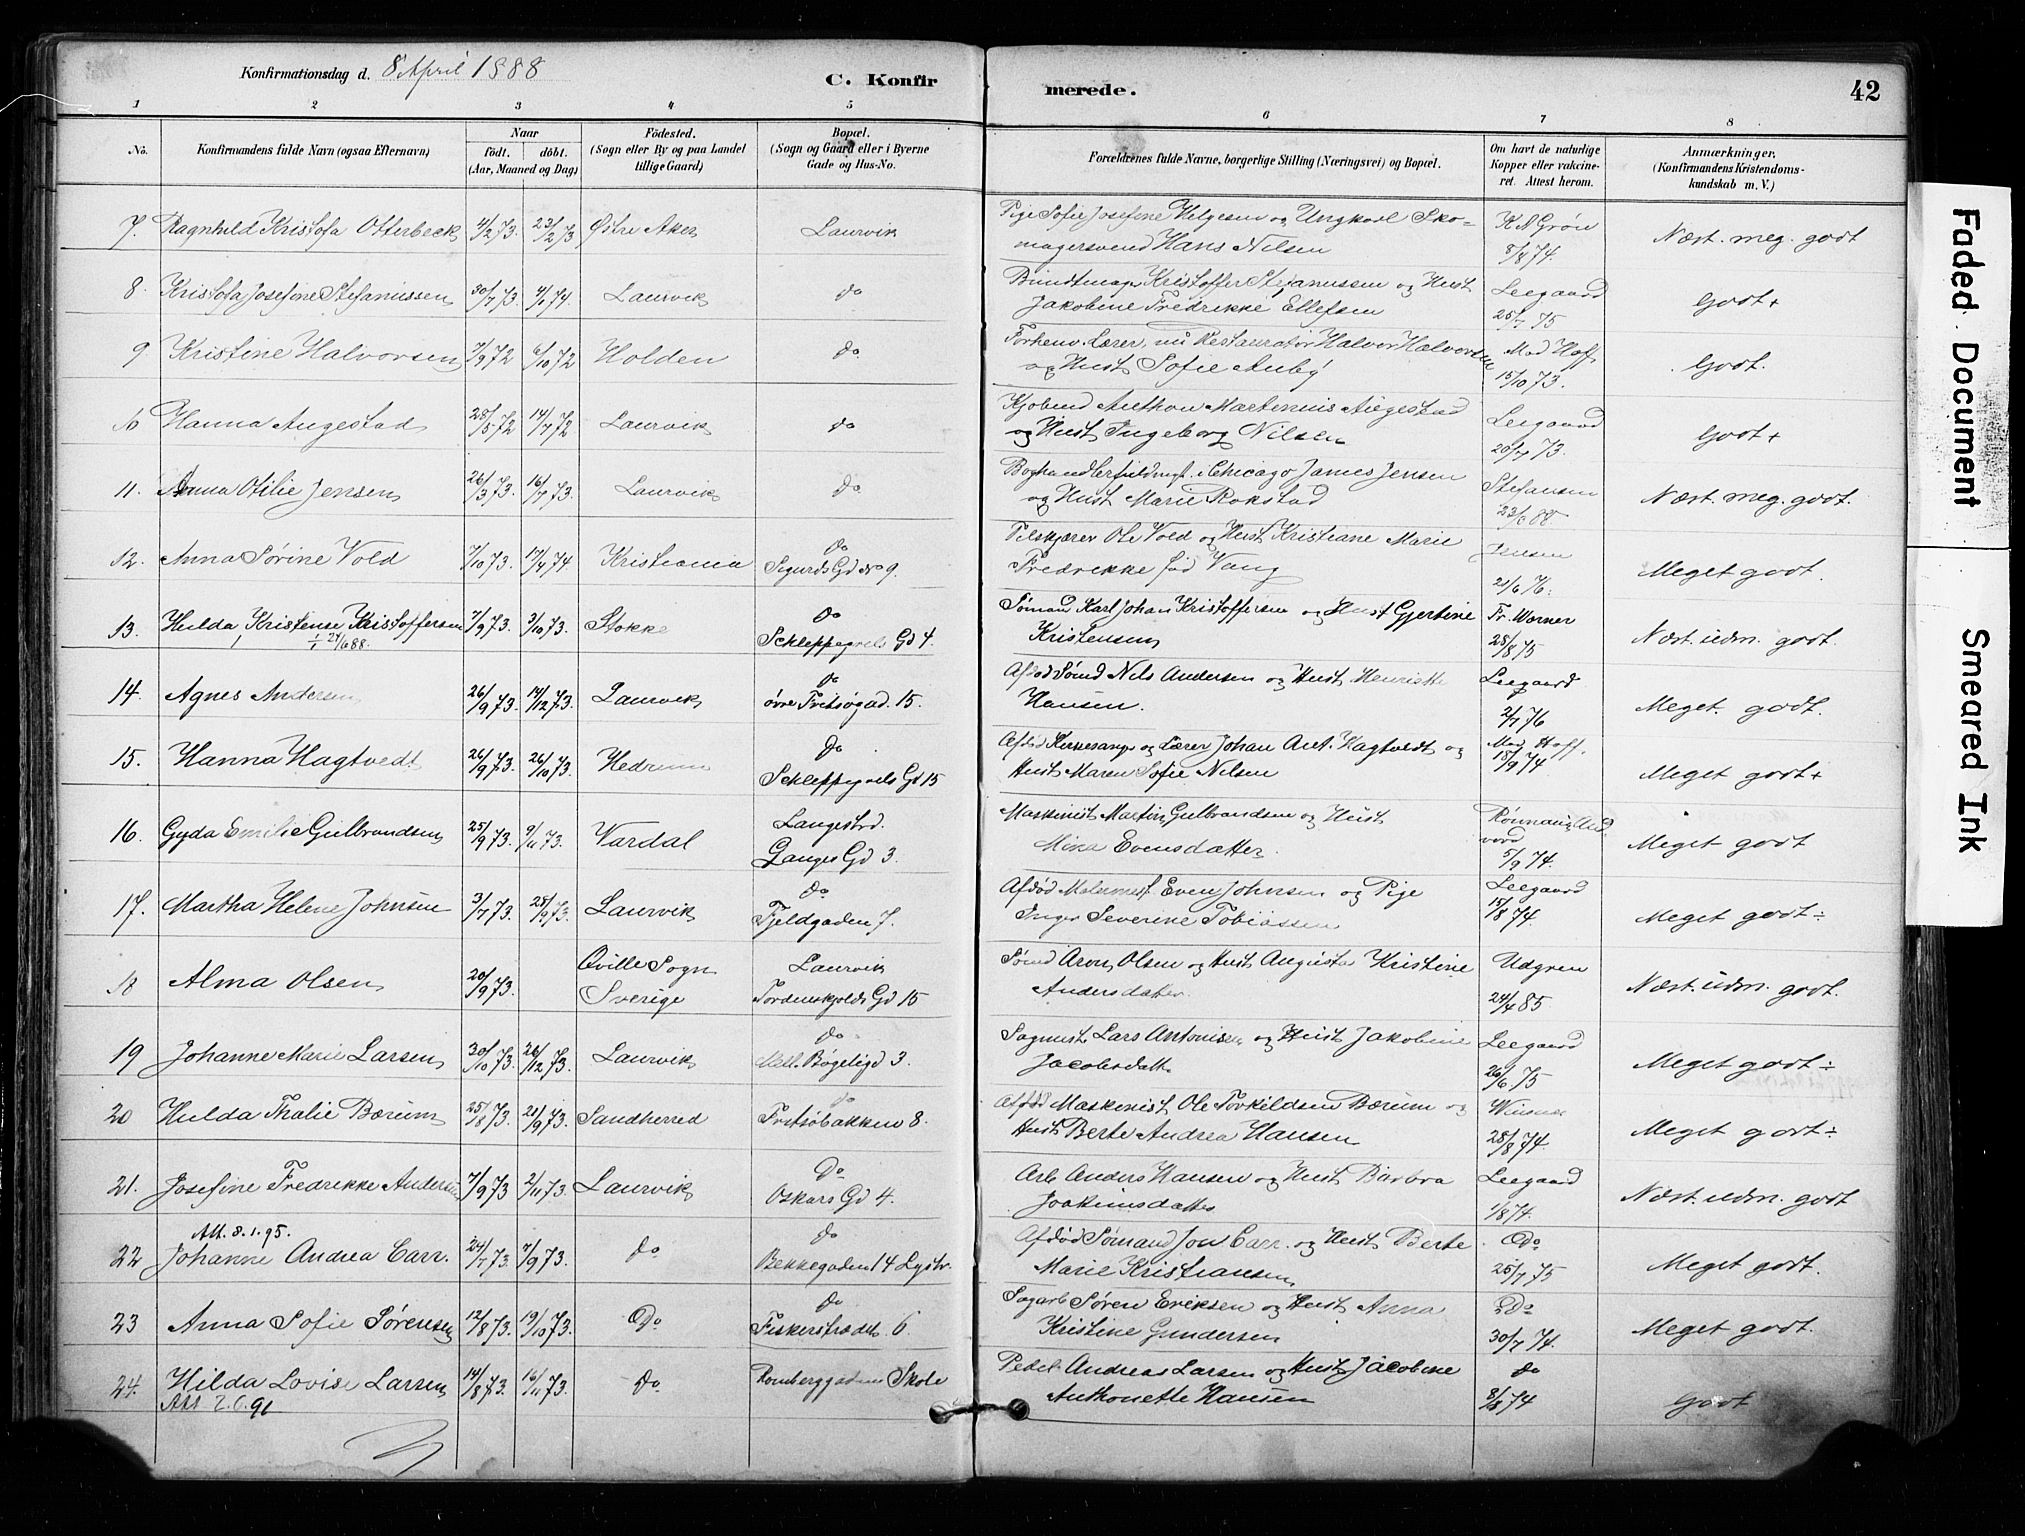 Konfirmationsdag d. 8 April 1888
C. Konfirmerede.
42
1 2 3 4 5 6 7 8
No.
Konfirmandens fulde Navn (ogsaa Efternavn)
Naar
födt. döbt.
(Aar, Maaned og Dag)
Födested.
(Sogn eller By og paa Landet tillige Gaard)
Bopæl.
(Sogn og Gaard eller i Byerne Gade og Hus-No.
Forældrenes fulde Navne, borgerlige Stilling (Næringsvei) og Bopæl.
Om havt de naturlige Kopper eller vakcineret. Attest herom.
Anmærkninger.
(Konfirmandens Kristendomskundskab m. V.)
7. Ragnhild Kristofa Otterbeck 4/2 73. 23/2 73 Østre Aker Laurvik Pige Sofie Josefine Helgesen og Ungkarl Sko-
magersvend Hans Nilsen K N Grøn 8/8 74. Næst. meg. godt
8. Kristofa Josefine Stefanussen 30/7 73. 4/1 74. Laurvik do Bundtmager Kristoffer Stefanussen og Hust
Jakobine Fredrikke Ellefsen Leegaard 25/7 75 Godt+
9 Kristine Halvorsen 7/9 72 6/10 72 Holden do Forhenv. Lærer, nu Restauratør Halvor Halvorsen
og Hust Sofie Auby Mad Hoff 15/10 73. Godt.
10 Hanna Augestad 28/5 72 14/7 72 Laurvik do Kjøbmd Anthon Martinius Augestad
og Hust Ingeborg Nilsen Leegaard 20/7 73. Godt+
11. Anna Otilie Jensen 26/3 73. 16/7 73. Laurvik do Boghandlerfuldmgt. i Chicago James Jensen
og Hust Marie Rokstad Stefansen 23/6 88. Næst. meg. godt.
12. Anna Sørine Vold 7/10 73. 17/4 74. Kristiania do
Sigurds Gd No 9. Pelskjærer Ole Vold og Hust Kristiane Marie
Fredrikke fød Vang Jensen 21/6 76. Meget godt.
13. Hulda Kristense Kristoffersen 7/9 73. 3/10 73. Stokke Do
24/6 88. Schleppegrels Gd 4. Sømand Karl Johan Kristoffersen og Hust Gjertine
Kristensen Fr. Worner 28/8 75 Næst. udm. godt.
14. Agnes Andersen 26/9 73. 14/12 73. Laurvik do
øvre Fritsøgad. 15. Afdød Sømd Nils Andersen og Hust Henriette
Hansen. Leegaard 2/7 76 Meget godt.
15. Hanna Hagtvedt 26/9 73. 26/10 73. Hedrum Do
Schleppegrels Gd 15 Afdød Kirkesanger og Lærer Johan Ant. Hagtvedt og
Hust Maren Sofie Nilsen Mad Hoff. 15/9 74 Meget godt+
16. Gyda Emilie Gulbrandsen 25/9 73. 9/11 73. Vardal Langestrd.
Langes Gd 3. Maskinist Martin Gulbrandsen og Hust
Mina Evensdatter. 5/9 74. Meget godt
17. Martha Helene Johnsen 3/7 73. 28/9 73. Laurvik do
Fjeldgaden 7. Afdød Malermest. Even Johnsen og Pige
Inger Severine Tobiassen Leegaard 15/8 74. Meget godt÷
18 Alma Olsen 20/9 73. Qville Sogn
Sverige Laurvik
Tordenskjolds Gd 15 Sømd Aron Olsen og Hust Augusta Kristine
Andersdatter. Udgren 24/4 85 Næst. udm. godt.
19 Johanne Marie Larsen 30/10 73. 26/12 73. Laurvik do
Mell. Bøgeligd 3. Sagmest Lars Antonisen og Hust Jakobine
Jacobsdatt. Leegaard 26/6 75 Meget godt÷
20 Hulda Thalie Bærum 25/8 73. 21/9 73. Sandherred do
Fritsøbakken 8. Afdød Maskinist Ole Torkildsen Bærum og
Hust Berte Andrea Hansen Winsnes 28/8 74. Meget godt÷
21. Josefine Fredrikke Andersen 7/9 73 2/11 73. Laurvik Do
Oskars Gd 4. Arb Anders Hansen og Hust Barbra
Joakimsdatter Leegaard 1/8 74. Næst. udm. godt
Att. 8.1.95.
22 Johanne Andrea Carr. 24/7 73. 7/9 73. do do
Bekkegaden 14 Lystr. Afdød Sømand Jon Carr. og Hust Berte
Marie Kristiansen Do 25/7 75 Meget godt.
23 Anna Sofie Sørensen 12/8 73. 19/10 73. Do do
Fiskerstrædet 6. Sagarb Søren Eriksen og Hust Anna
Kristine Gundersen Do 30/7 74. Meget godt.
24. Hilda Lovise Larsen 14/8 73. 16/11 73. Do Rombergaden Skole Pedel Andreas Larsen og Hust Jacobine
Att 2.6.91 Anthonette Hansen do 8/8 74 Godt
Faded Document
Smeared Ink